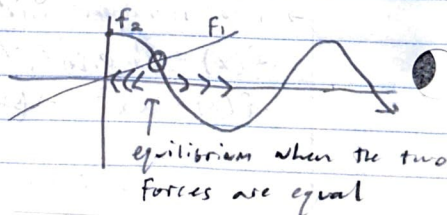 f₂ F₁
equilibrium when the two
forces are equal